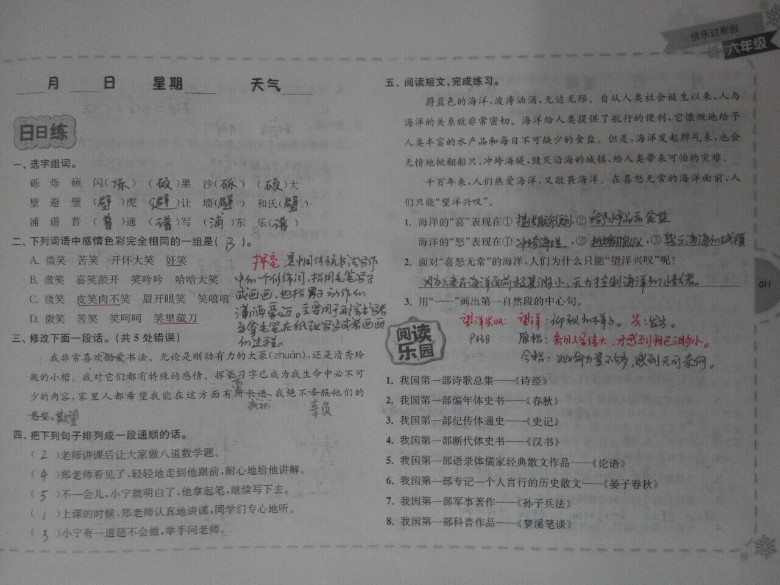 快乐过寒假
六年级
月 日 星期 天气
日日练
一、选字组词。
砾 烁 硕 闪(烁) (硕)果 沙(砾) (硕)大
壁 避 璧 (壁)虎 (避)让 墙(壁) 和氏(璧)
浦 谱 普 (普)通 (谱)写 (浦)东 乐(谱)
二、下列词语中感情色彩完全相同的一组是( B )。
A. 微笑 苦笑 开怀大笑 奸笑
B. 微笑 喜笑颜开 笑吟吟 哈哈大笑
C. 微笑 皮笑肉不笑 眉开眼笑 笑嘻嘻
D. 微笑 苦笑 笑呵呵 笑里藏刀
挥毫
三、修改下面一段话。(共5处错误)
我非常喜欢酷爱书法。无论是刚劲有力的大篆(zhuàn),还是清秀玲
珑的小楷,我对它们都有特殊的感情。挥毫习字已成为我生命中必不可
少的内容,家里人都希望我能在这方面有所长进,我绝不辜报他们的
期望
四、把下列句子排列成一段通顺的话。
( 2 )老师讲课后让大家做八道数学题。
( 4 )郑老师看见了,轻轻地走到他跟前,耐心地给他讲解。
( 5 )不一会儿,小宁就明白了,他拿起笔,继续写下去。
( 1 )上课的时候,郑老师认真地讲课,同学们专心地听。
( 3 )小宁有一道题不会做,举手问老师。
五、阅读短文,完成练习。
蔚蓝色的海洋,波涛汹涌,无边无际。自从人类社会诞生以来,人与
海洋的关系就非常密切。海洋给人类提供了航行的便利,它慷慨地给予
人类丰富的水产品和每日不可缺少的食盐。但是,海洋发起脾气来,也会
无情地掀翻船只,冲垮海堤,毁灭沿海的城镇,给人类带来可怕的灾难。
千百年来,人们热爱海洋,又敬畏海洋。在喜怒无常的海洋面前,人
们只能“望洋兴叹”。
1. 海洋的“喜”表现在① 提供航行便利 ② 给予水产品和食盐
海洋的“怒”表现在① 冲垮海堤 ② 掀翻船只 ③ 毁灭沿海的城镇
2. 面对“喜怒无常”的海洋,人们为什么只能“望洋兴叹”呢?
3. 用“~~~”画出第一自然段的中心句。
阅读乐园
1. 我国第一部诗歌总集——《诗经》
2. 我国第一部编年体史书——《春秋》
3. 我国第一部纪传体通史——《史记》
4. 我国第一部断代体史书——《汉书》
5. 我国第一部语录体儒家经典散文作品——《论语》
6. 我国第一部专记一个人言行的历史散文——《晏子春秋》
7. 我国第一部军事著作——《孙子兵法》
8. 我国第一部科普作品——《梦溪笔谈》
011